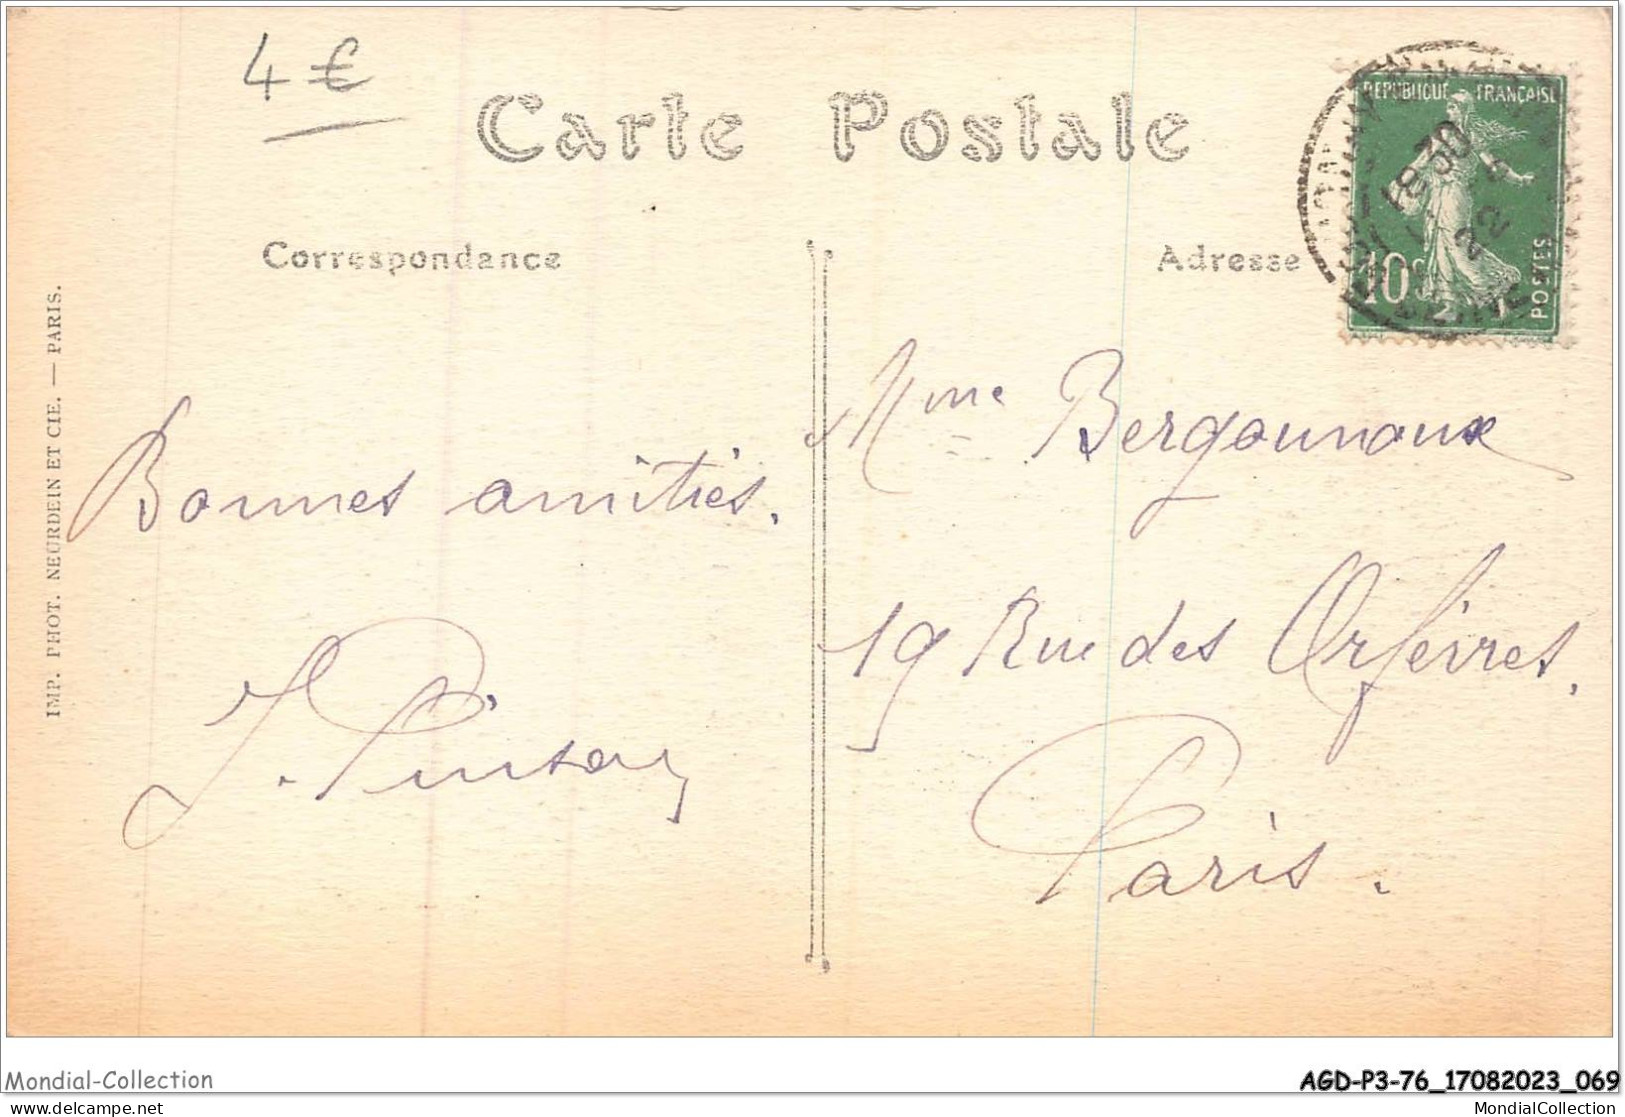 4 €
Carte Postale
REPUBLIQUE FRANÇAISE
18 30
22
10
POSTES
Correspondance
Adresse
IMP. PHOT. NEURDEIN ET CIE. — PARIS.
Mme Bergounoux
Bonnes amitiés.
19 Rue des Orfèvres.
J. Pinson
Paris.
Mondial-Collection
AGD-P3-76_17082023_069
delcampe.net
MondialCollection